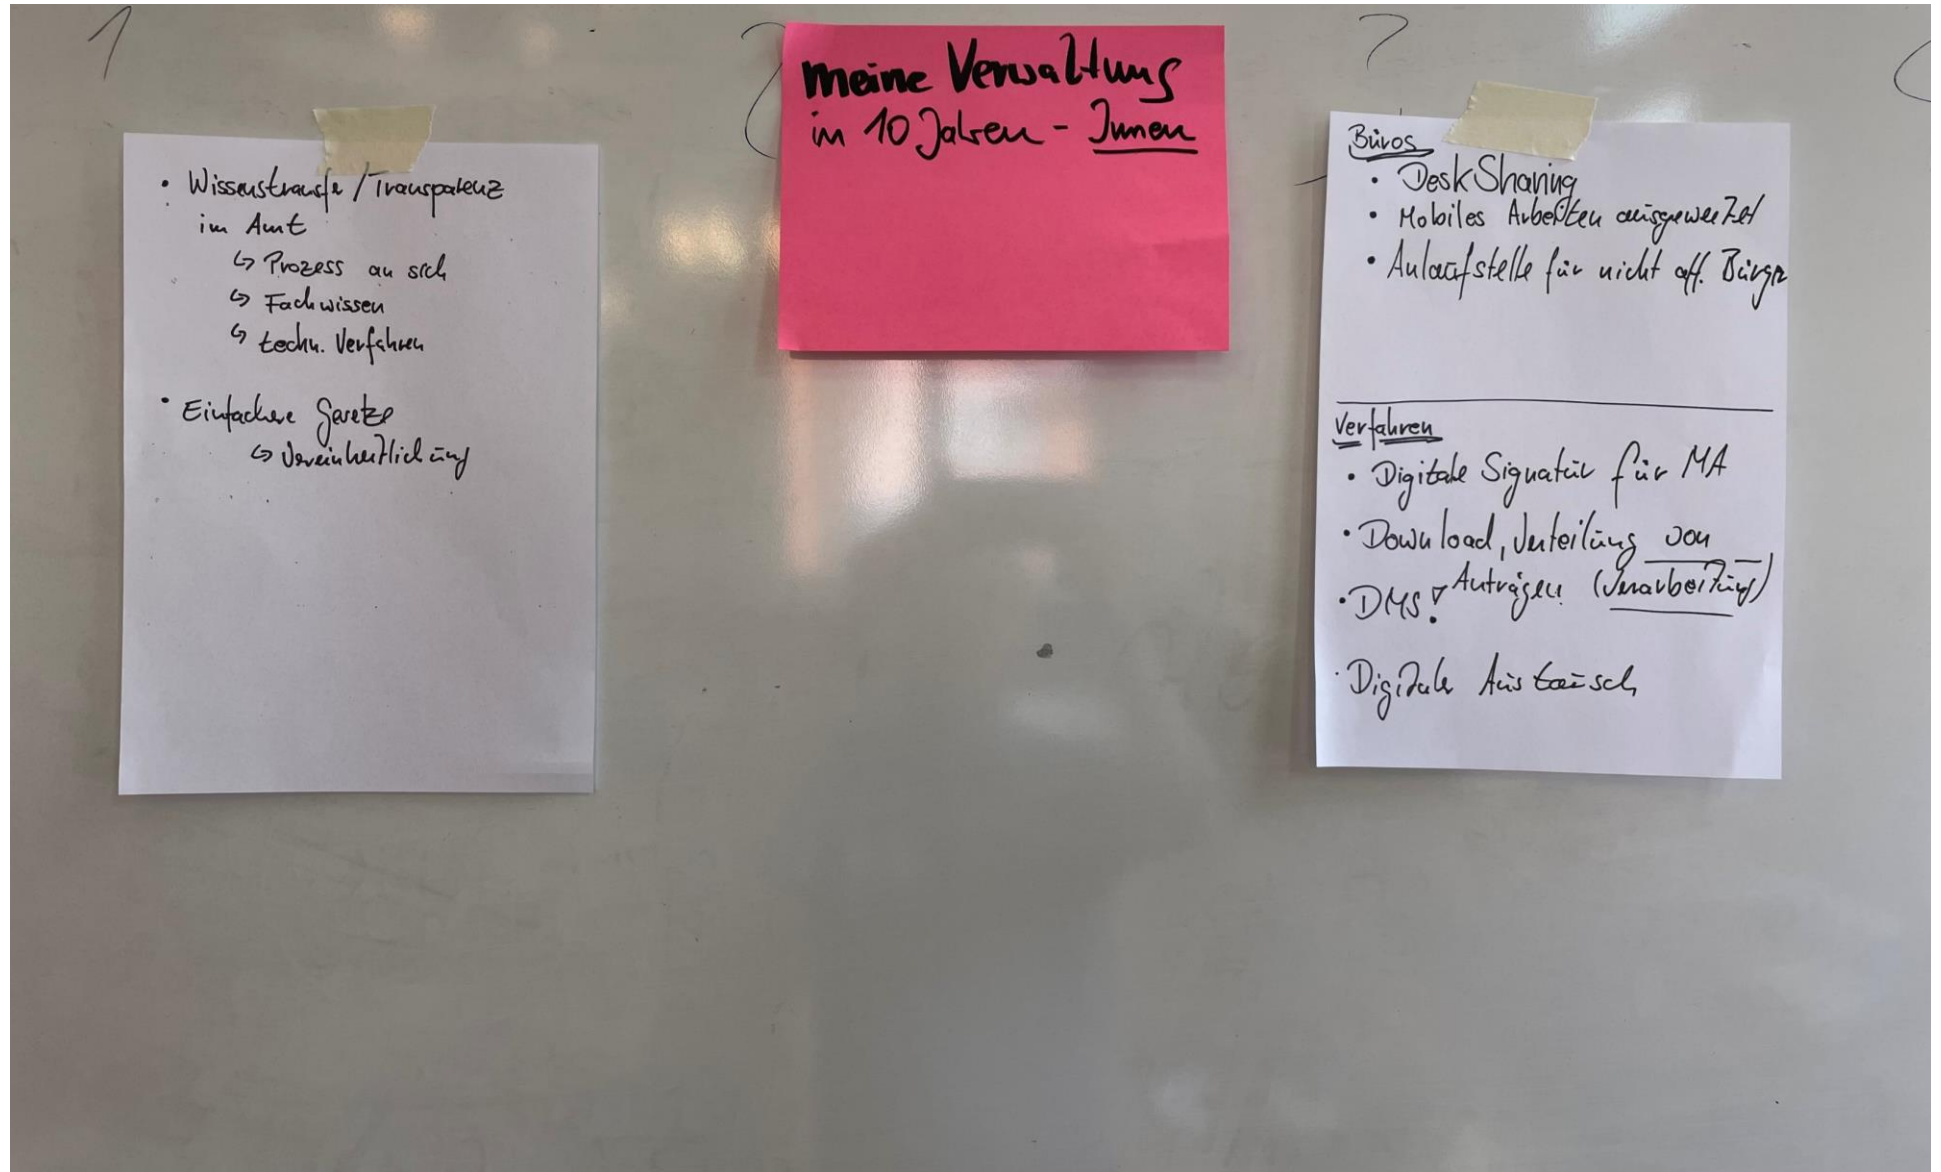 meine Verwaltung
in 10 Jahren - Innen
• Wissenstransfer/Transparenz
im Amt
↳ Prozess an sich
↳ Fachwissen
↳ techn. Verfahren
• Einfachere Gesetze
↳ Vereinheitlichung
Büros
• DeskSharing
• Mobiles Arbeiten ausgeweitet
• Anlaufstelle für nicht aff. Bürger
Verfahren
• Digitale Signatur für MA
• Download, Verteilung von
Anträgen (Verarbeitung)
• DMS!
• Digitaler Austausch